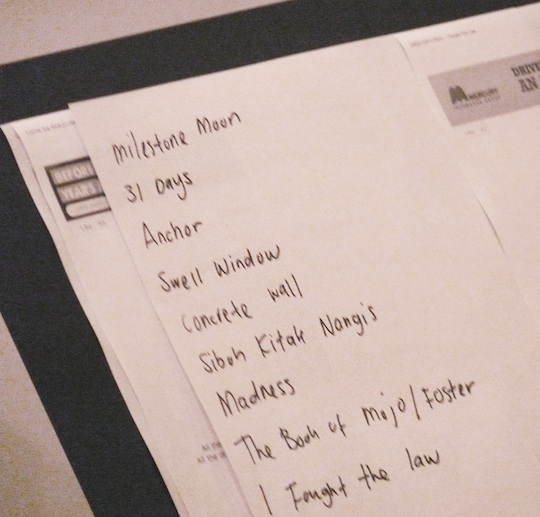 Milestone Moon
31 Days
Anchor
Swell Window
Concrete Wall
Siboh Kitak Nangis
Madness
The Book of Mojo/Foster
I Fought the law
BEFORE
YEARS
MERCURY
DRIVE
AN